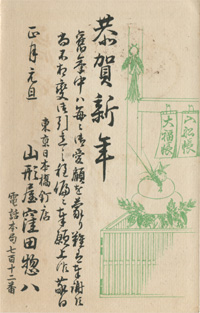 恭賀新年
舊年中ハ毎々御愛顧を蒙り難有奉謝候
尚不相変御引立之程偏ニ奉願上候 敬白
正月元旦
東京日本橋釘店
山形屋窪田惣八
電話本局七百十二番
大福帳